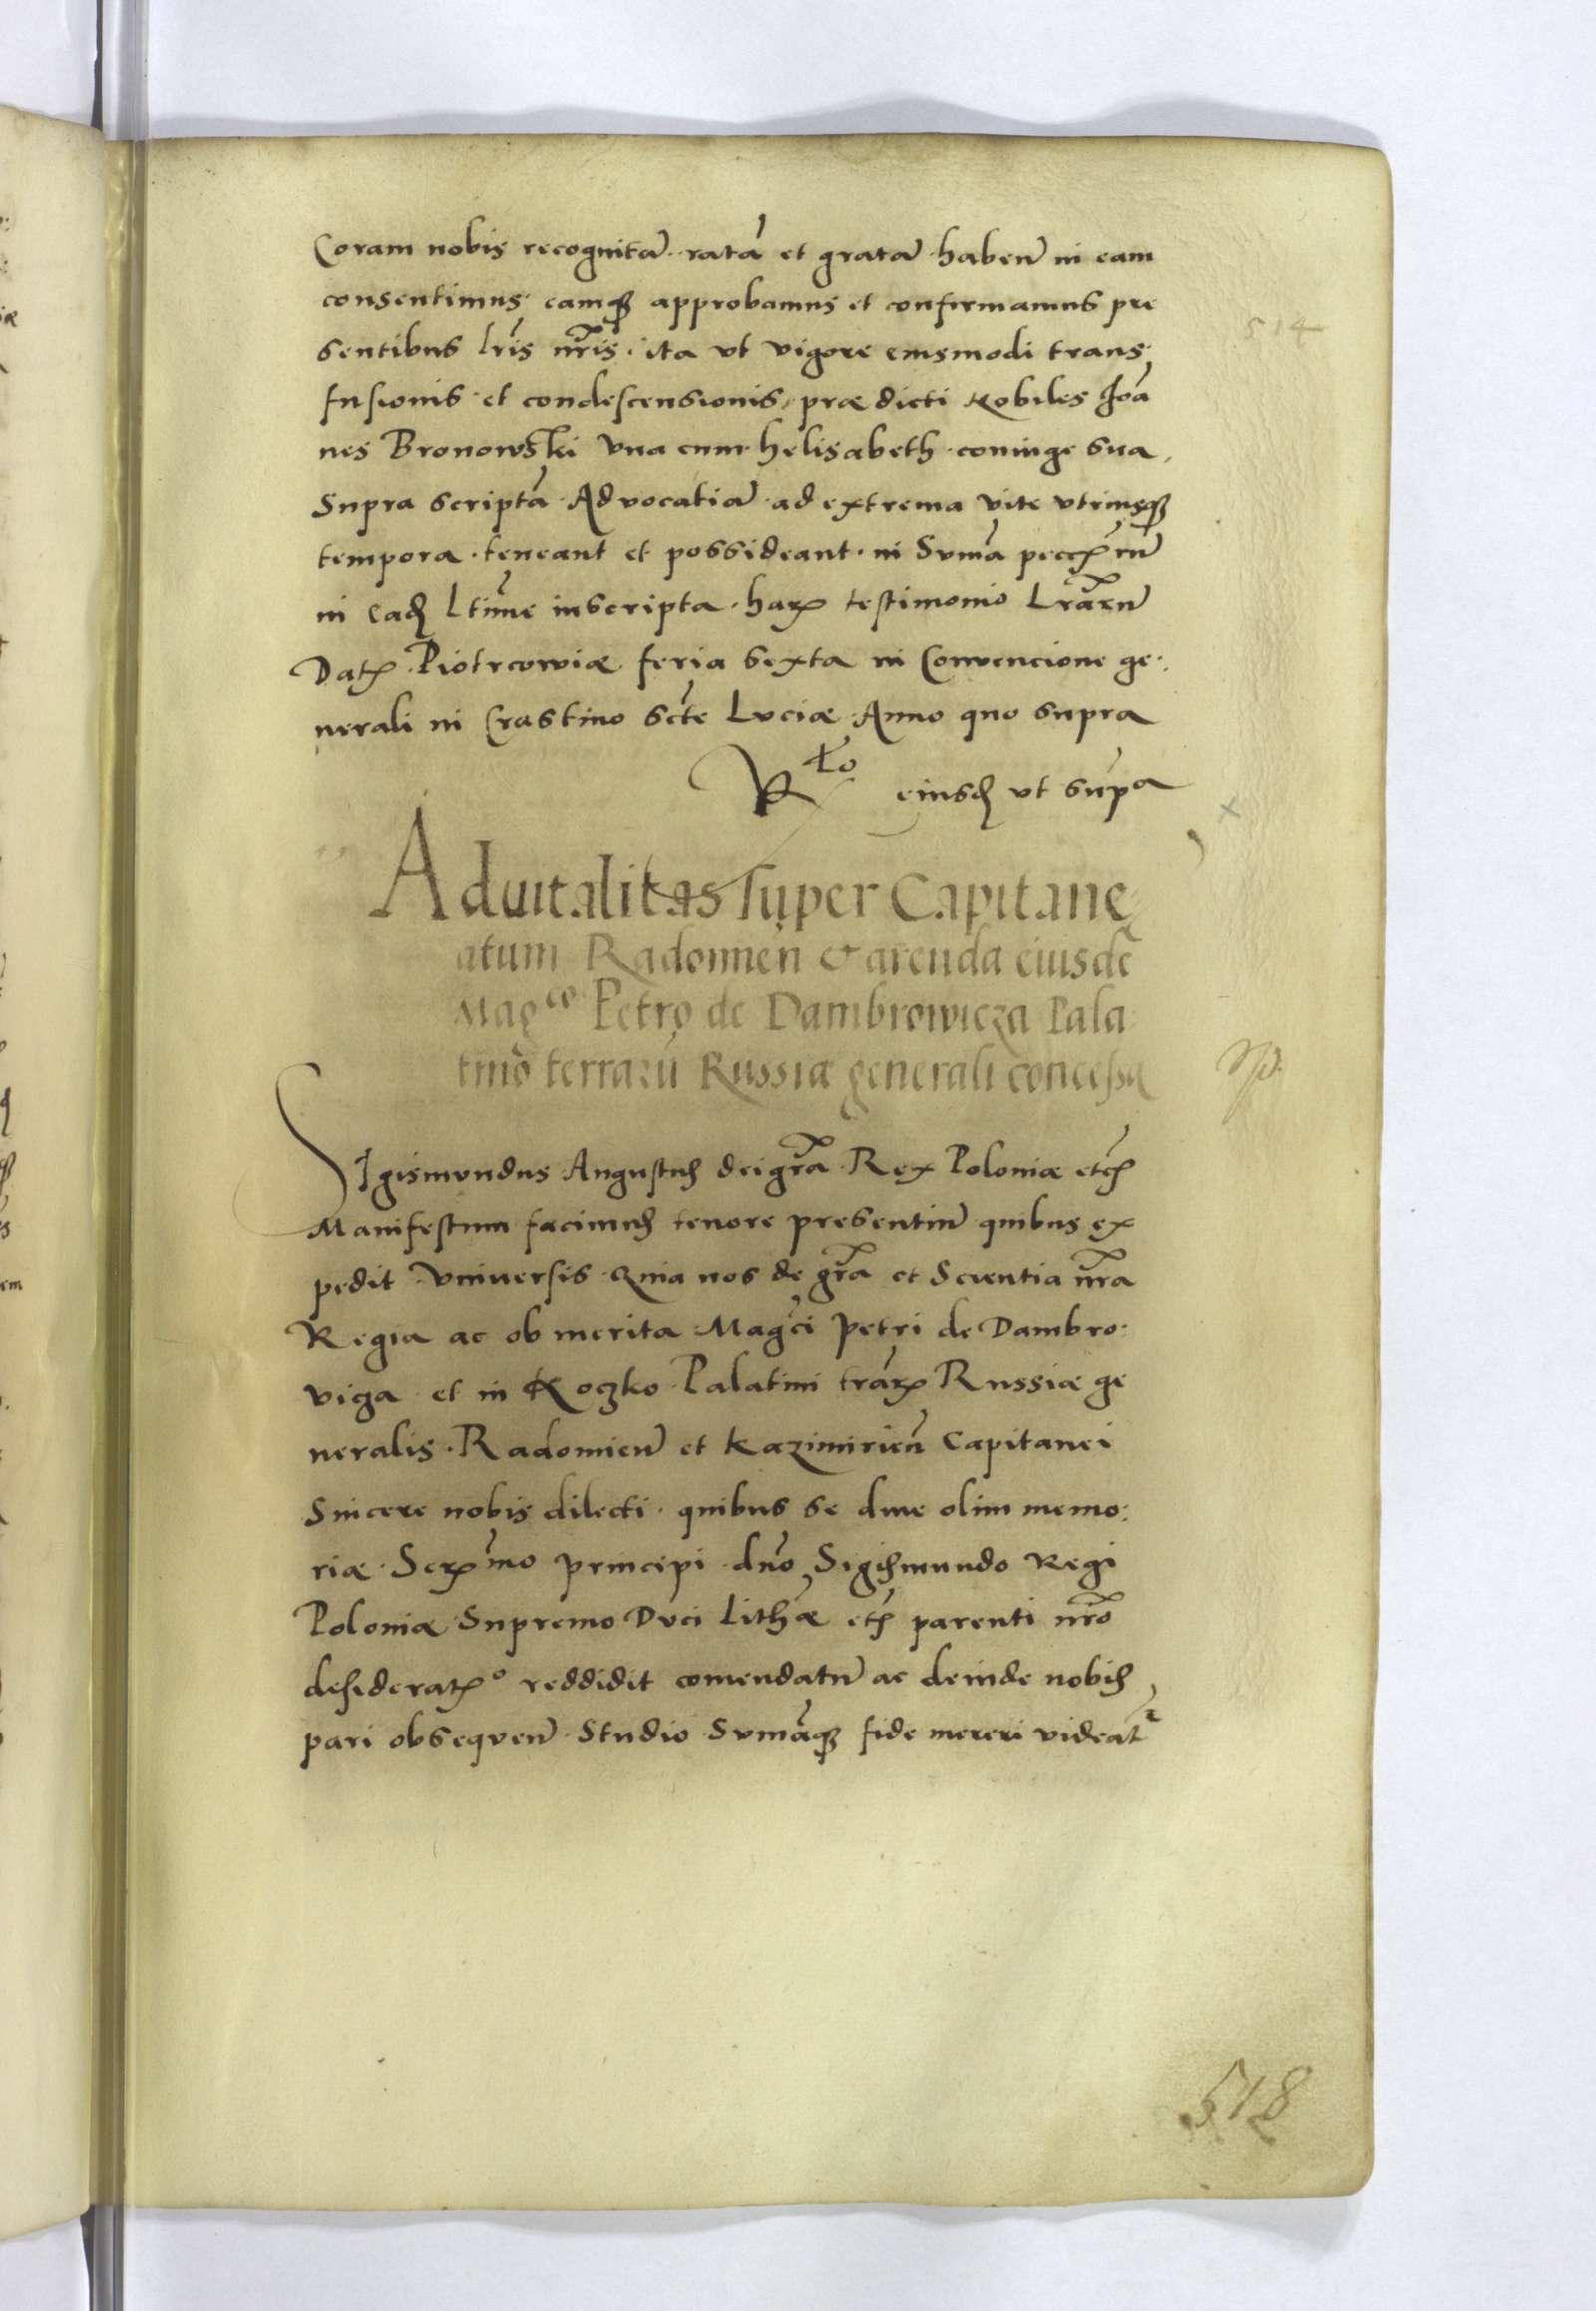 Coram nobis recognitā ratā et gratā habeñ in eam
consentimus eamqꝫ approbamus et confirmamus pre
sentibus lr̃is nr̃is. ita ut vigore eiusmodi trans
fusionis et condescensionis, prædicti Nobiles Joã
nes Bronowski vna cum helisabeth coniuge sua,
Supra scriptã Advocatiã ad extrema vite vtriusqꝫ
tempora teneant et possideant in Sum̃a
in Eadẽ inscripta. harꝫ testimonio Lr̃arũ
Datꝫ Piotrcowiæ feria sexta in Convencione ge:
nerali in Crastino sctẽ Luciæ Anno quo supra
Rᵗᵒ eiusdẽ vt supᵃ
Aduitalitas super Capitane
atum Radomieñ & arenda eiusdẽ
Magᶜᵒ Petro de Dambrowicza Pala
tino terrarũ Russiæ generali concessa
Sigismundus Augustus dei gr̃a Rex Poloniæ etcꝫ
Manifestum facimus tenore presentiũ quibus ex
pedit vniuersis Quia nos de gr̃a et Scientia nr̃a
Regia ac ob merita Magc̃i Petri de Dambro:
vicza et in Koczko Palatini tr̃arꝫ Russiæ ge
neralis. Radomieñ et Kazimirieñ Capitanei
Sincere nobis dilecti quibus se diue olim memo:
riæ Serꝫmo principi dño Sigismundo Regi
Poloniæ Supremo Duci Lithæ̃ etcꝫ parenti nr̃o
desideratꝫᵒ reddidit comendatũ ac deinde nobis
pari obsequeñ Studio Sum̃aqꝫ fide mereri videatʳ
514
518